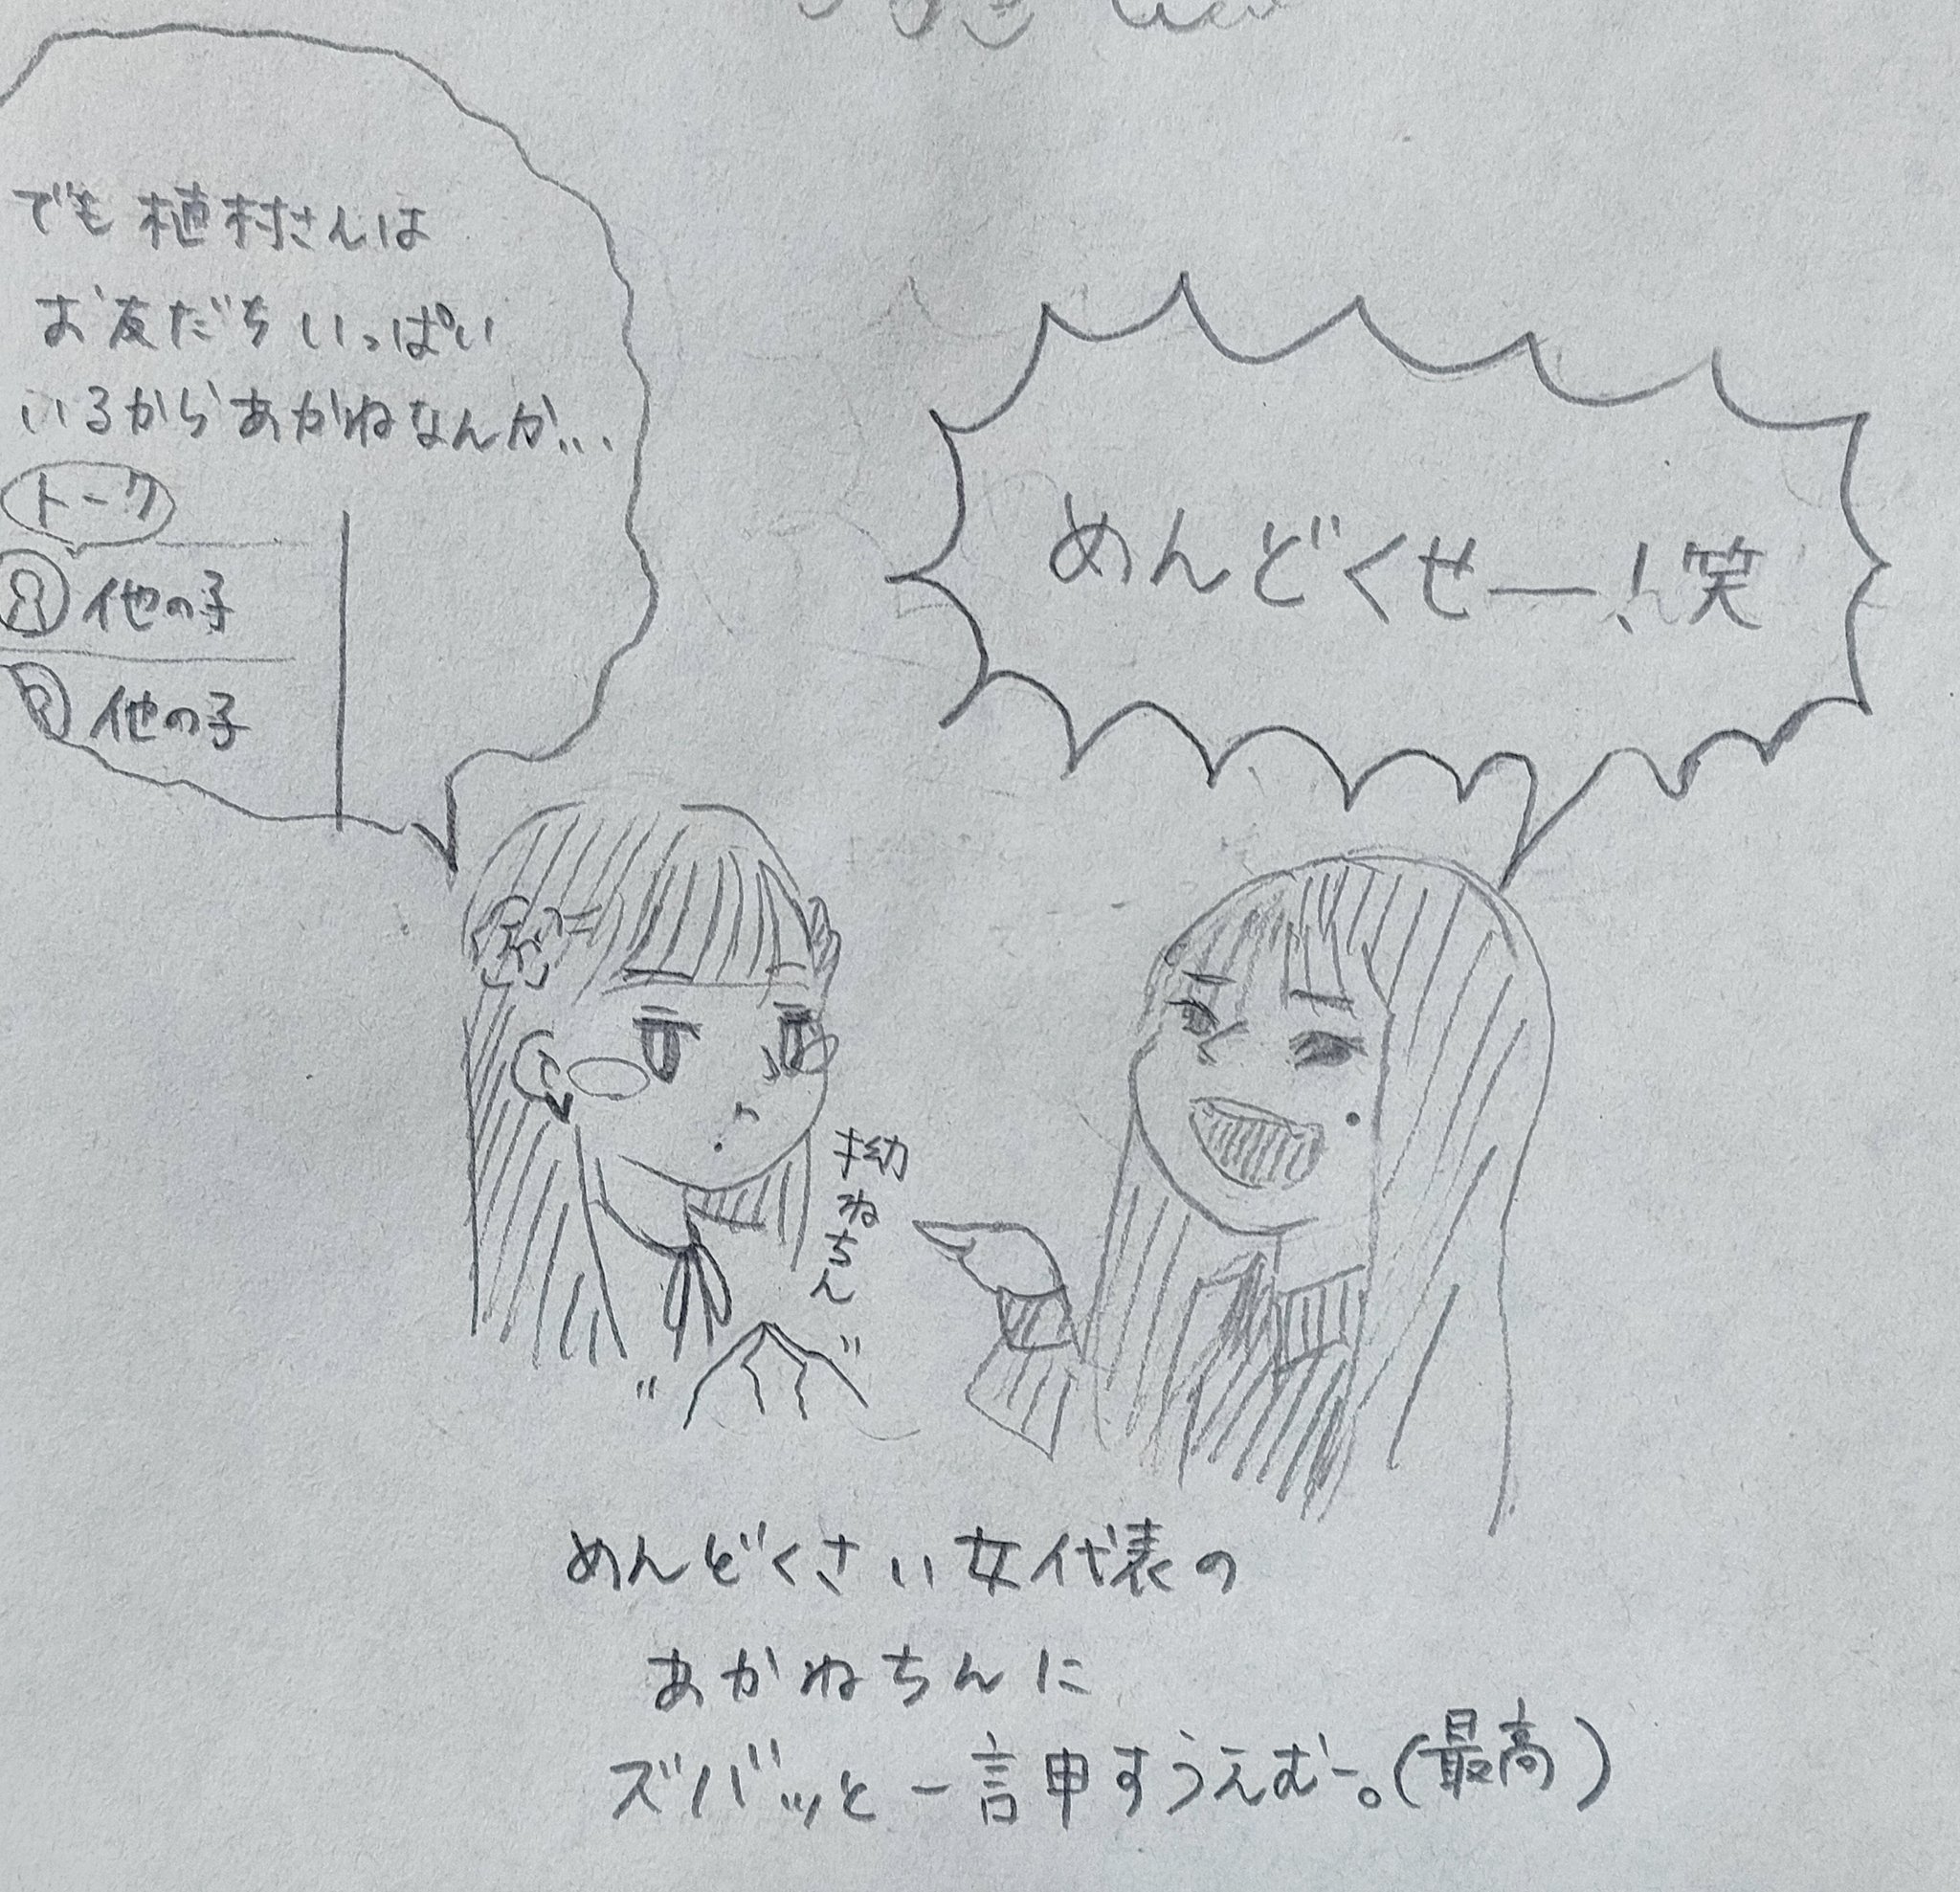 でも植村さんは
お友だちいっぱい
いるからあかねなんか...
トーク
他の子
他の子
めんどくせー!笑
拗ねちん
めんどくさい女代表の
あかねちんに
ズバッと一言申すうえむー。(最高)